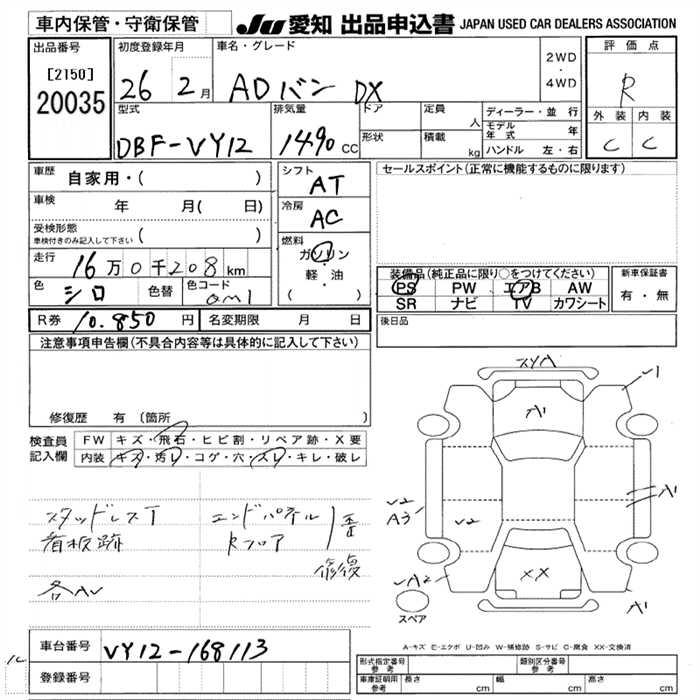 車内保管・守衛保管
JU 愛知 出品申込書 JAPAN USED CAR DEALERS ASSOCIATION
出品番号
[2150]
20035
初度登録年月
26 2月
車名・グレード
ADバン DX
2WD
・
4WD
評価点
R
外装 内装
C C
型式
DBF-VY12
排気量
1490 cc
ドア
形状
定員
人
積載
kg
ディーラー・並行
モデル年式 年
ハンドル 左・右
車歴
自家用・( )
車検
年 月( 日)
受検形態
車検付きのみ記入して下さい ( )
走行
16万0千208km
色
シロ
色替
色コード
QM1
シフト
AT
冷房
AC
燃料
ガソリン
・
軽・油
( )
セールスポイント(正常に機能するものに限ります)
装備品(純正品に限り○をつけてください)
PS PW エアB AW
SR ナビ TV カワシート
新車保証書
有・無
後日品
R券 10.850 円
名変期限 月 日
注意事項申告欄(不具合内容等は具体的に記入して下さい)
修復歴 有(箇所 )
検査員
記入欄
FW キズ・飛石・ヒビ割・リペア跡・X要
内装 キズ・汚レ・コゲ・穴・スレ・キレ・破レ
スタッドレスT
看板跡
各AU
エンドパネル
Rフロア
歪
修復
XYA
A1
レ1
A1
レ2
A3
レ2
XX
レA2
A1
スペア
A-キズ E-エクボ U-凹み W-補修跡 S-サビ C-腐食 XX-交換済
車台番号
VY12-168113
登録番号
形式指定番号
参考
類別区分番号
参考
車庫証明用
参考
長さ cm
幅 cm
高さ cm